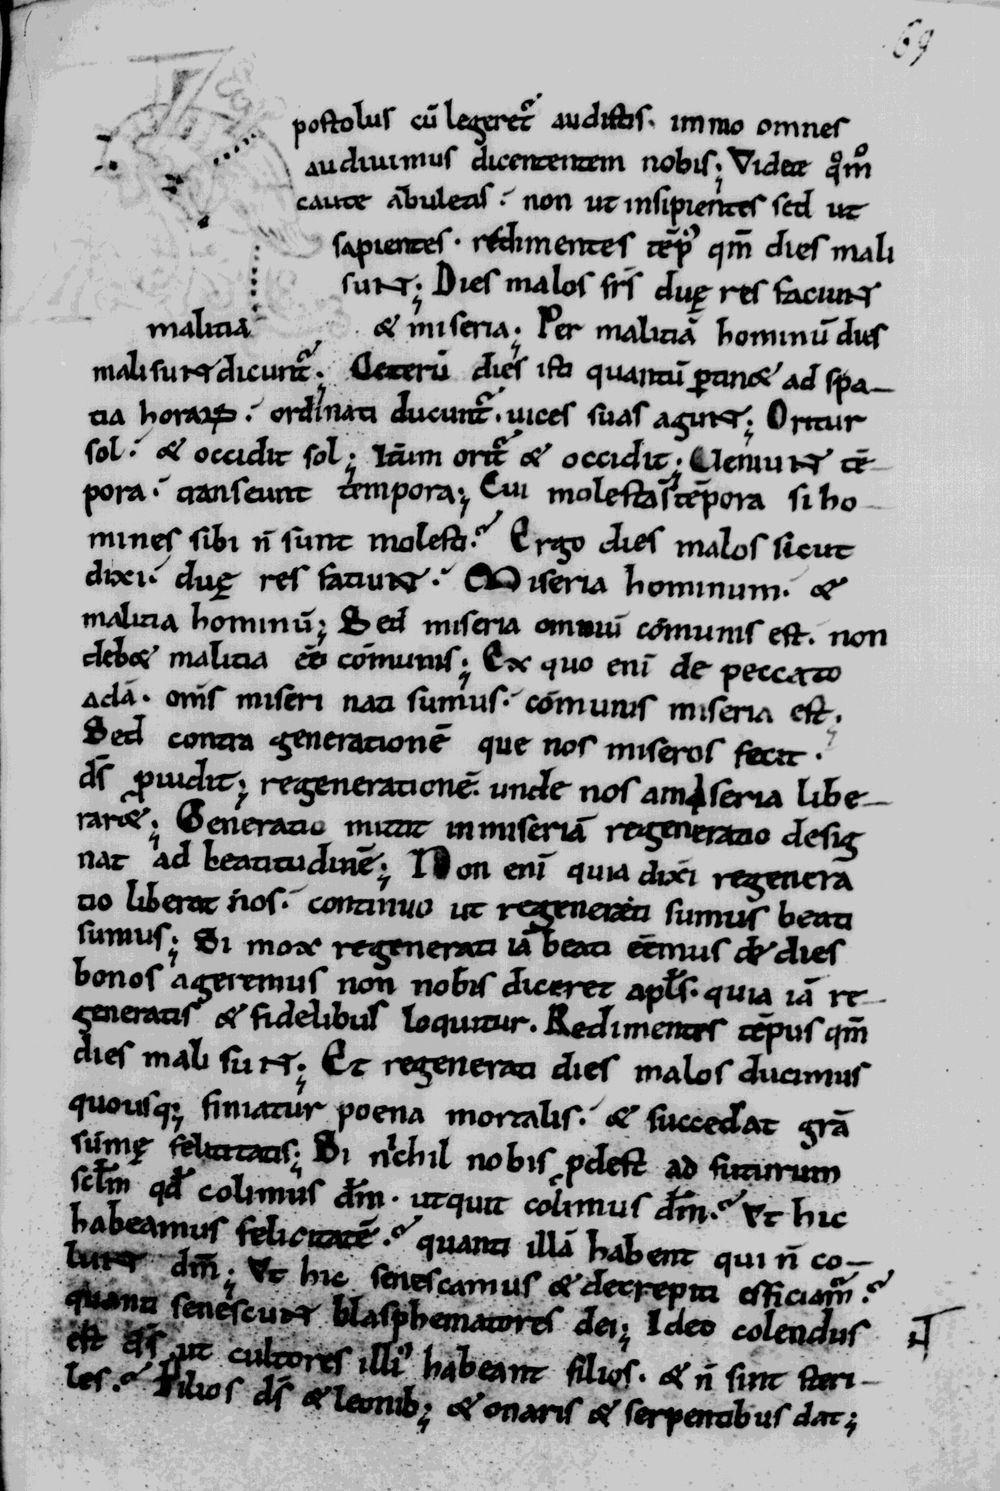 69
postolus cū legeret᷑ audistis. immo omnes
audiuimus dicentem nobis; Videte qm̊o
caute ābuletis. non ut insipientes sed ut
sapientes. redimentes tēp᷒ qm̄ dies mali
sunt; Dies malos frs̄ duę res faciunt
malitiā & miseria; Per malitiā hominū dies
mali sunt dicunt᷑; Ceterū dies isti quantū ꝑtin& ad spa-
tia horaꝝ. ordinati ducunt᷑. uices suas agunt; Oritur
sol. & occidit sol; Itm̄ orit᷑ & occidit; Veniunt tē-
pora. transeunt tempora; Cui molesta st̄ tēpora si ho-
mines sibi n̄ sunt molesti. Ergo dies malos sicut
dixi. duę res fatiunt. Miseria hominum. &
malitia hominū; Sed miseria omniū cōmunis est. non
deb& malitia eē cōmunis; Ex quo enī de peccato
adā. oms̄ miseri nati sumus. cōmunis miseria est;
Sed contra generationē que nos miseros fecit.
ds̄ ꝓuidit; regenerationē. unde nos a miseria libe-
rar&; Generatio mittit in miseriā regeneratio desig
nat ad beatitudinē; Non enī quia dixi regenera
tio liberat nos. continuo ut regenerati sumus beati
sumus; Si mox regenerati iā beati eēmus & dies
bonos ageremus non nobis diceret apl̄s. quia iā re-
generatis & fidelibus loquitur. Redimentes tēpus qm̄
dies mali sunt; Et regenerati dies malos ducimus
quousq; finiatur poena mortalis. & succedat grā
sūmę felicitatis; Si nichil nobis ꝓdest ad futurum
scl̄m qđ colimus dm̄. utquit colimus dm̄. Vt hic
habeamus felicitatē. quanti illā habent qui n̄ co-
lunt dm̄; Vt hic senescamus & decrepiti efficiam᷑.
quanti senescunt blasphematores dei; Ideo colendus
est ds̄ ut cultores illi᷒ habeant filios. & n̄ sint steri-
les. Filios ds̄ & leonib; & onaris & serpentibus dat;